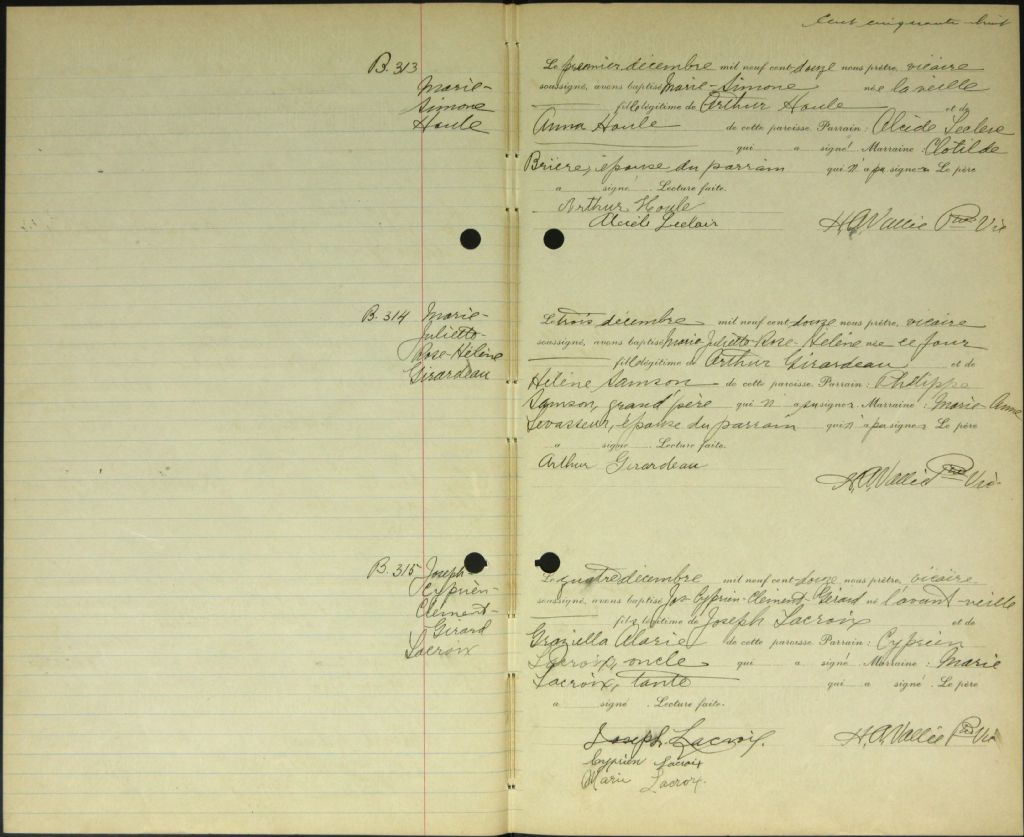 Cent cinquante-huit
B. 313
Marie-
Simone
Houle
Le premier décembre mil neuf cent douze nous prêtre, vicaire
soussigné, avons baptisé Marie-Simone née la veille
fille légitime de Arthur Houle et de
Anna Houle de cette paroisse. Parrain: Alcide Leclerc
qui a signé. Marraine: Clotilde
Brière, épouse du parrain qui n'a pu signer. Le père
a signé. Lecture faite.
Arthur Houle
Alcide Leclair
H.A. Vallée Ptre Vic
B. 314 Marie-
Juliette-
Rose-Hélène
Girardeau
Le trois décembre mil neuf cent douze nous prêtre, vicaire
soussigné, avons baptisé Marie-Juliette-Rose-Hélène née ce jour
fille légitime de Arthur Girardeau et de
Hélène Samson de cette paroisse. Parrain: Philippe
Samson, grand'père qui n'a pu signer. Marraine: Marie-Anne
Levasseur, épouse du parrain qui n'a pu signer. Le père
a signé. Lecture faite.
Arthur Girardeau
H.A. Vallée Ptre Vic
B. 315 Joseph-
Cyprien-
Clément-
Gérard
Lacroix
Le quatre décembre mil neuf cent douze nous prêtre, vicaire
soussigné, avons baptisé Jos-Cyprien-Clément-Gérard né l'avant-veille
fils légitime de Joseph Lacroix et de
Graziella Alarie de cette paroisse. Parrain: Cyprien
Lacroix, oncle qui a signé. Marraine: Marie
Lacroix, tante qui a signé. Le père
a signé. Lecture faite.
Joseph Lacroix.
Cyprien Lacroix
Marie Lacroix.
H.A. Vallée Ptre Vic